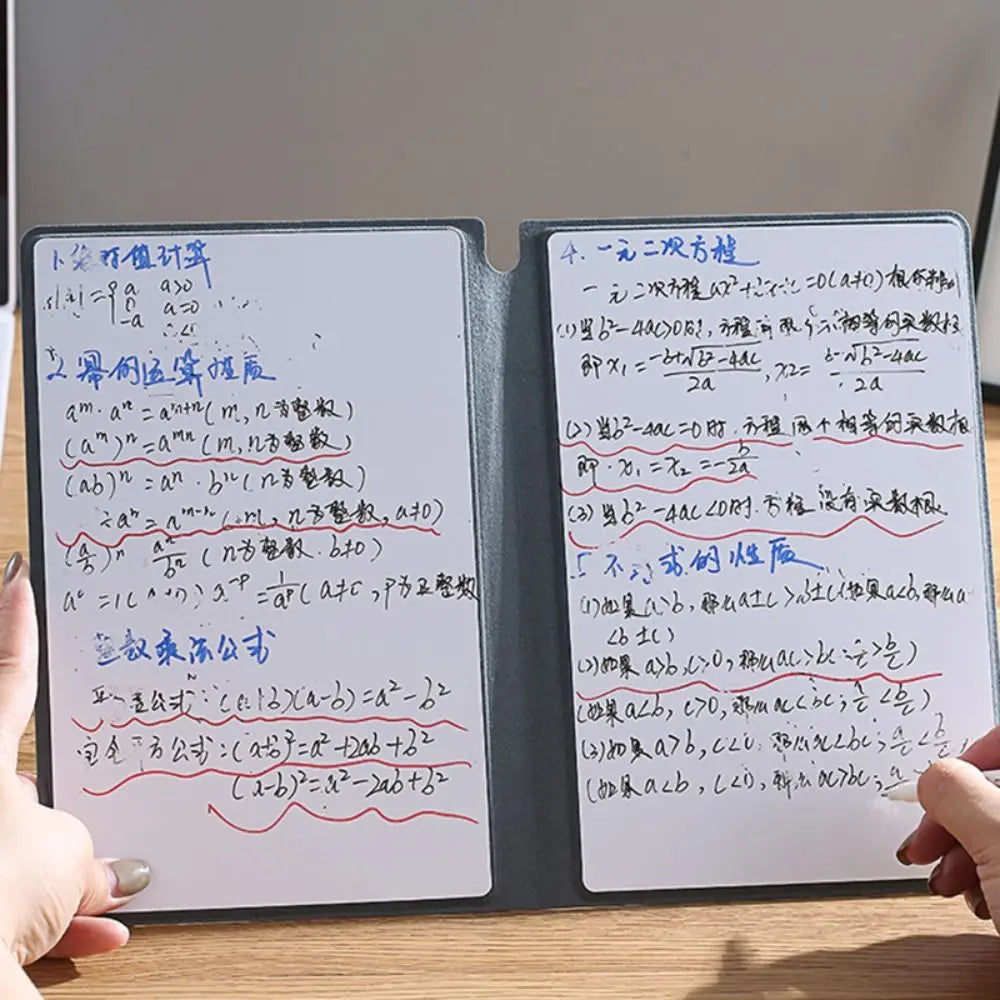 1、绝对值计算
= a a>0
0 a=0
-a <0
2 幂的运算性质
aᵐ·aⁿ=aᵐ⁺ⁿ(m,n为整数)
(aᵐ)ⁿ=aᵐⁿ(m,n为整数)
(ab)ⁿ=aⁿ·bⁿ(n为整数)
÷aⁿ=aᵐ⁻ⁿ(m,n为整数,a≠0)
(a/b)ⁿ aⁿ/bⁿ (n为整数.b≠0)
a⁻ᵖ=1/aᵖ(a≠0,p为正整数
整数乘法公式
公式:(a+b)(a-b)=a²-b²
完全 方公式:(a+b)²=a²+2ab+b²
-b)²= -2ab+b²
4.一元二次方程
一元二次方程ax²+ =0(a≠0)根
(1)当b²-4ac>0时,方程有两个不相等的实数根
即x₁=-b+√b²-4ac/2a,x₂= b-√b²-4ac/2a
(2)当b²-4ac=0时.方程两个相等的实数根
即·x₁=x₂=-b/2a
(3)当b²-4ac<0时.方程没有实数根
5 不 式的性质
(1)如果a>b,那么a±c>b±c(如果a<b,那么a
<b±c)
(2)如果a>b,c>0,那么ac>bc; >b/c)
(如果a<b,c>0,那么ac<bc;a/c<b/c)
(3)如果a>b,c<0.那么ac<bc;a/c<b/c,
(如果a<b,c<0,那么ac>bc;a